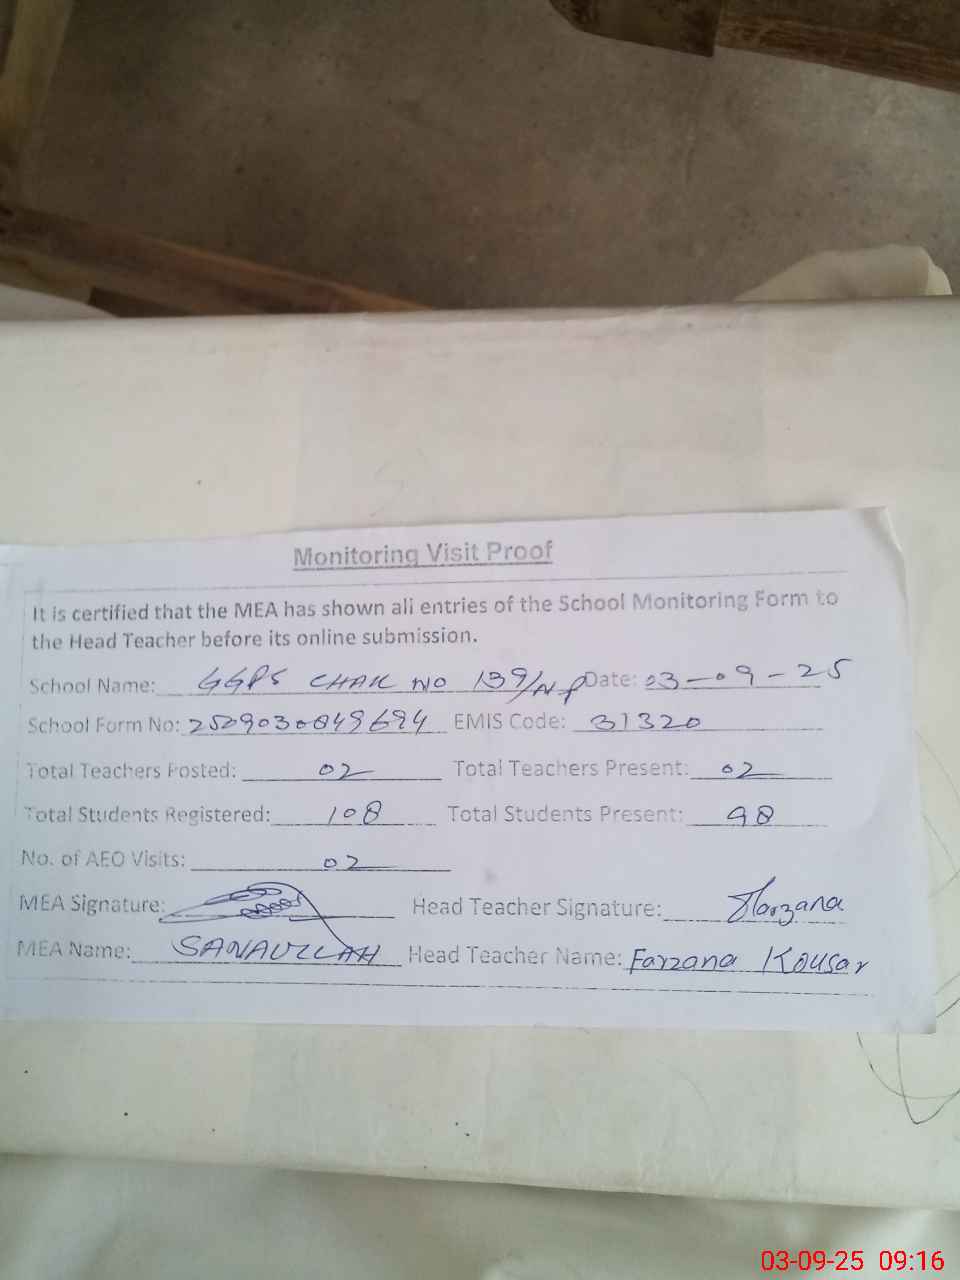 Monitoring Visit Proof
It is certified that the MEA has shown all entries of the School Monitoring Form to
the Head Teacher before its online submission.
School Name: GGPS CHAK NO 139/NP Date: 03-09-25
School Form No: 2509030049694 EMIS Code: 31320
Total Teachers Posted: 02 Total Teachers Present: 02
Total Students Registered: 108 Total Students Present: 98
No. of AEO Visits: 02
MEA Signature: Head Teacher Signature: Farzana
MEA Name: SANAULLAH Head Teacher Name: Farzana Kousar
03-09-25 09:16